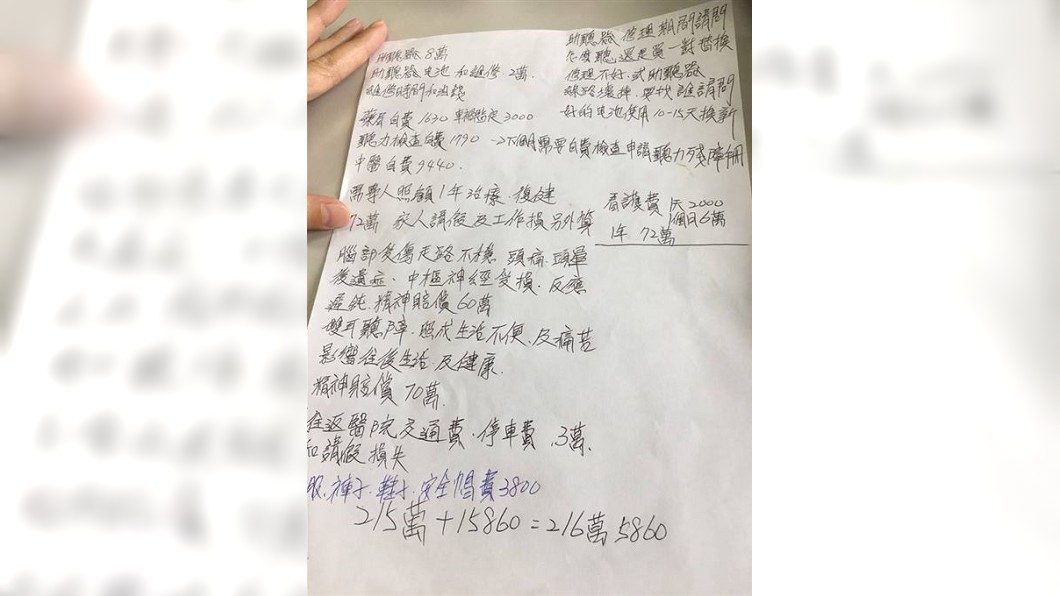 助聽器 8萬
助聽器电池 和維修 2萬.
維修時間和油錢
藥局自費 1630 車禍鑑定 3000
聽力檢查自費 1790 一2个月需要自費檢查申請聽力殘障手冊
中醫自費 9440.
助聽器 修理期間請問
怎麼聽 還是買一對替換
修理不好.或助聽器
線路壞掉.要找誰請問
好的电池使用 10-15天換新
需專人照顧1年治療.復健
72萬 家人請假及工作損另外算
看護費 1天 2000
1個月6萬
1年 72萬
腦部受傷走路不穩.頭痛.頭暈
後遺症、中樞神經受損.反應
遲鈍.精神賠償60萬
雙耳聽障.照成生活不便.及痛苦
影響往後生活.及健康.
精神賠償 70萬.
往返醫院交通費.停車費.3萬.
和請假損失
服.褲子.鞋子.安全帽費3800
215萬+15860=216萬5860